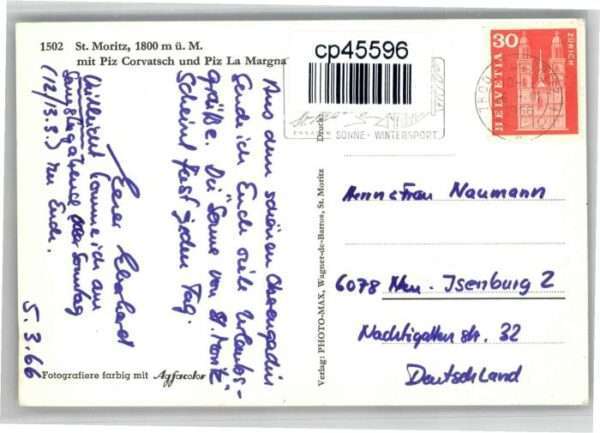 1502 St. Moritz, 1800 m ü. M.
mit Piz Corvatsch und Piz La Margna
cp45596
SONNE - WINTERSPORT
30
HELVETIA
ZÜRICH
Aus dem schönen Oberengadin
sende ich Euch viele Urlaubs-
grüße. Die Sonne von St. Moritz
scheint fast jeden Tag.
Euer Eberhard
Vielleicht komme ich am
Samstagabend oder Sonntag
(12/13.3.) zu Euch.
5.3.66
Fotografiere farbig mit Agfacolor
Verlag: PHOTO-MAX, Wagner-de-Barros, St. Moritz
Naumann
6078 Neu-Isenburg 2
Nachtigallenstr. 32
Deutschland